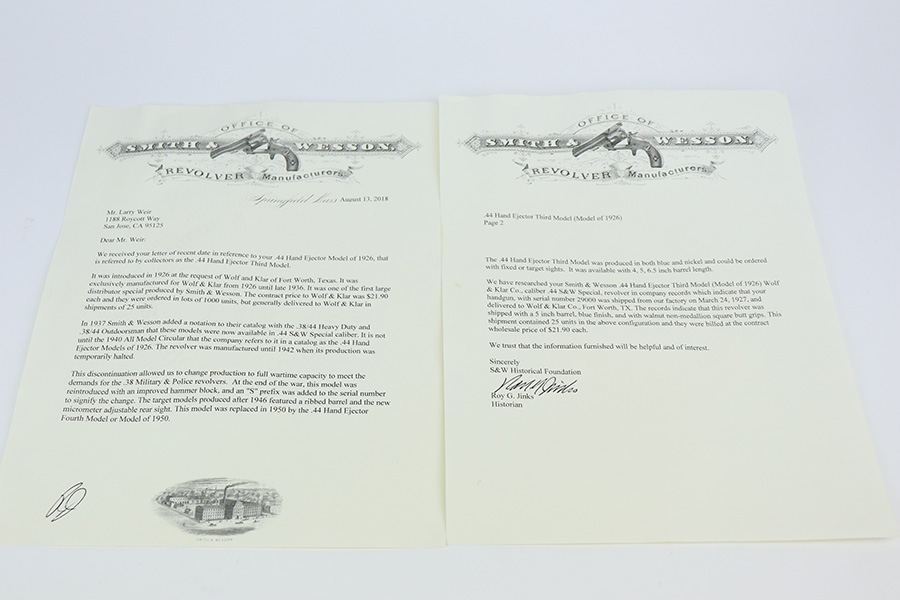 OFFICE OF
SMITH & WESSON,
REVOLVER Manufacturers.
Springfield Mass August 13, 2018
Mr. Larry Weir
1188 Roycott Way
San Jose, CA 95125
Dear Mr. Weir:
We received your letter of recent date in reference to your .44 Hand Ejector Model of 1926, that
is referred to by collectors as the .44 Hand Ejector Third Model.
It was introduced in 1926 at the request of Wolf and Klar of Fort Worth, Texas. It was
exclusively manufactured for Wolf & Klar from 1926 until late 1936. It was one of the first large
distributor special produced by Smith & Wesson. The contract price to Wolf & Klar was $21.90
each and they were ordered in lots of 1000 units, but generally delivered to Wolf & Klar in
shipments of 25 units.
In 1937 Smith & Wesson added a notation to their catalog with the .38/44 Heavy Duty and
.38/44 Outdoorsman that these models were now available in .44 S&W Special caliber. It is not
until the 1940 All Model Circular that the company refers to it in a catalog as the .44 Hand
Ejector Models of 1926. The revolver was manufactured until 1942 when its production was
temporarily halted.
This discontinuation allowed us to change production to full wartime capacity to meet the
demands for the .38 Military & Police revolvers. At the end of the war, this model was
reintroduced with an improved hammer block, and an "S" prefix was added to the serial number
to signify the change. The target models produced after 1946 featured a ribbed barrel and the new
micrometer adjustable rear sight. This model was replaced in 1950 by the .44 Hand Ejector
Fourth Model or Model of 1950.
OFFICE OF
SMITH & WESSON,
REVOLVER Manufacturers.
.44 Hand Ejector Third Model (Model of 1926)
Page 2
The .44 Hand Ejector Third Model was produced in both blue and nickel and could be ordered
with fixed or target sights. It was available with 4, 5, 6.5 inch barrel length.
We have researched your Smith & Wesson .44 Hand Ejector Third Model (Model of 1926) Wolf
& Klar Co., caliber .44 S&W Special, revolver in company records which indicate that your
handgun, with serial number 29000 was shipped from our factory on March 24, 1927, and
delivered to Wolf & Klar Co., Fort Worth, TX. The records indicate that this revolver was
shipped with a 5 inch barrel, blue finish, and with walnut non-medallion square butt grips. This
shipment contained 25 units in the above configuration and they were billed at the contract
wholesale price of $21.90 each.
We trust that the information furnished will be helpful and of interest.
Sincerely
S&W Historical Foundation
Roy G. Jinks
Roy G. Jinks
Historian